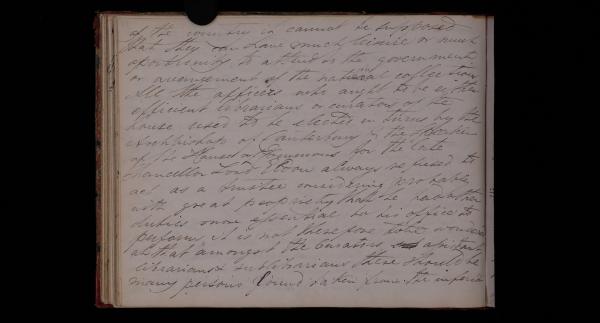 of the country it cannot be supposed
that they can have much leisure or much
opportunity to attend to the government
or arrangement of the national collection
All the officers who ought to be the
efficient librarians or curators of the
house used to be elected in turns by the
Archbishop of Canterbury & the Speaker
of the House of Commons for the late
Chancellor Lord Eldon always refused to
act as a trustee considering probably
with great propriety that he had other
duties more essential to his office to
perform. It is not therefore to be wondered
at that amongst the Curators, assistant
librarians & sublibrarians there should be
many persons found taken from the inferior